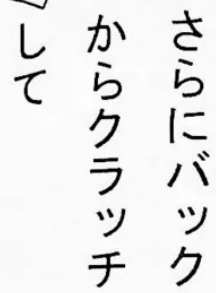 さらにバック
からクラッチ
して